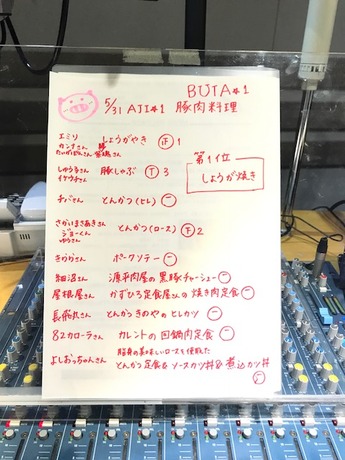 BUTA#1
5/31 AJI#1 豚肉料理
エミリ しょうがやき 正 1
カンナさん
さん
第1位
しょうが焼き
しゅうるさん 豚しゃぶ 3
イケウチさん
さん とんかつ(ヒレ) 一
さかいまさあきさん とんかつ(ロース) 下 2
ジョーくん
ゆうさん
さん ポークソテー 一
細沼さん 源平肉屋の黒豚チャーシュー 一
屋根屋さん かずひろ定食屋さんの焼き肉定食 一
長飛丸さん とんかつきのやのヒレカツ 一
82カローラさん カレントの回鍋肉定食 一
よしおっちゃんさん 脂身の美味しいロースを使用した
とんかつ定食&ソースカツ丼&煮込カツ丼